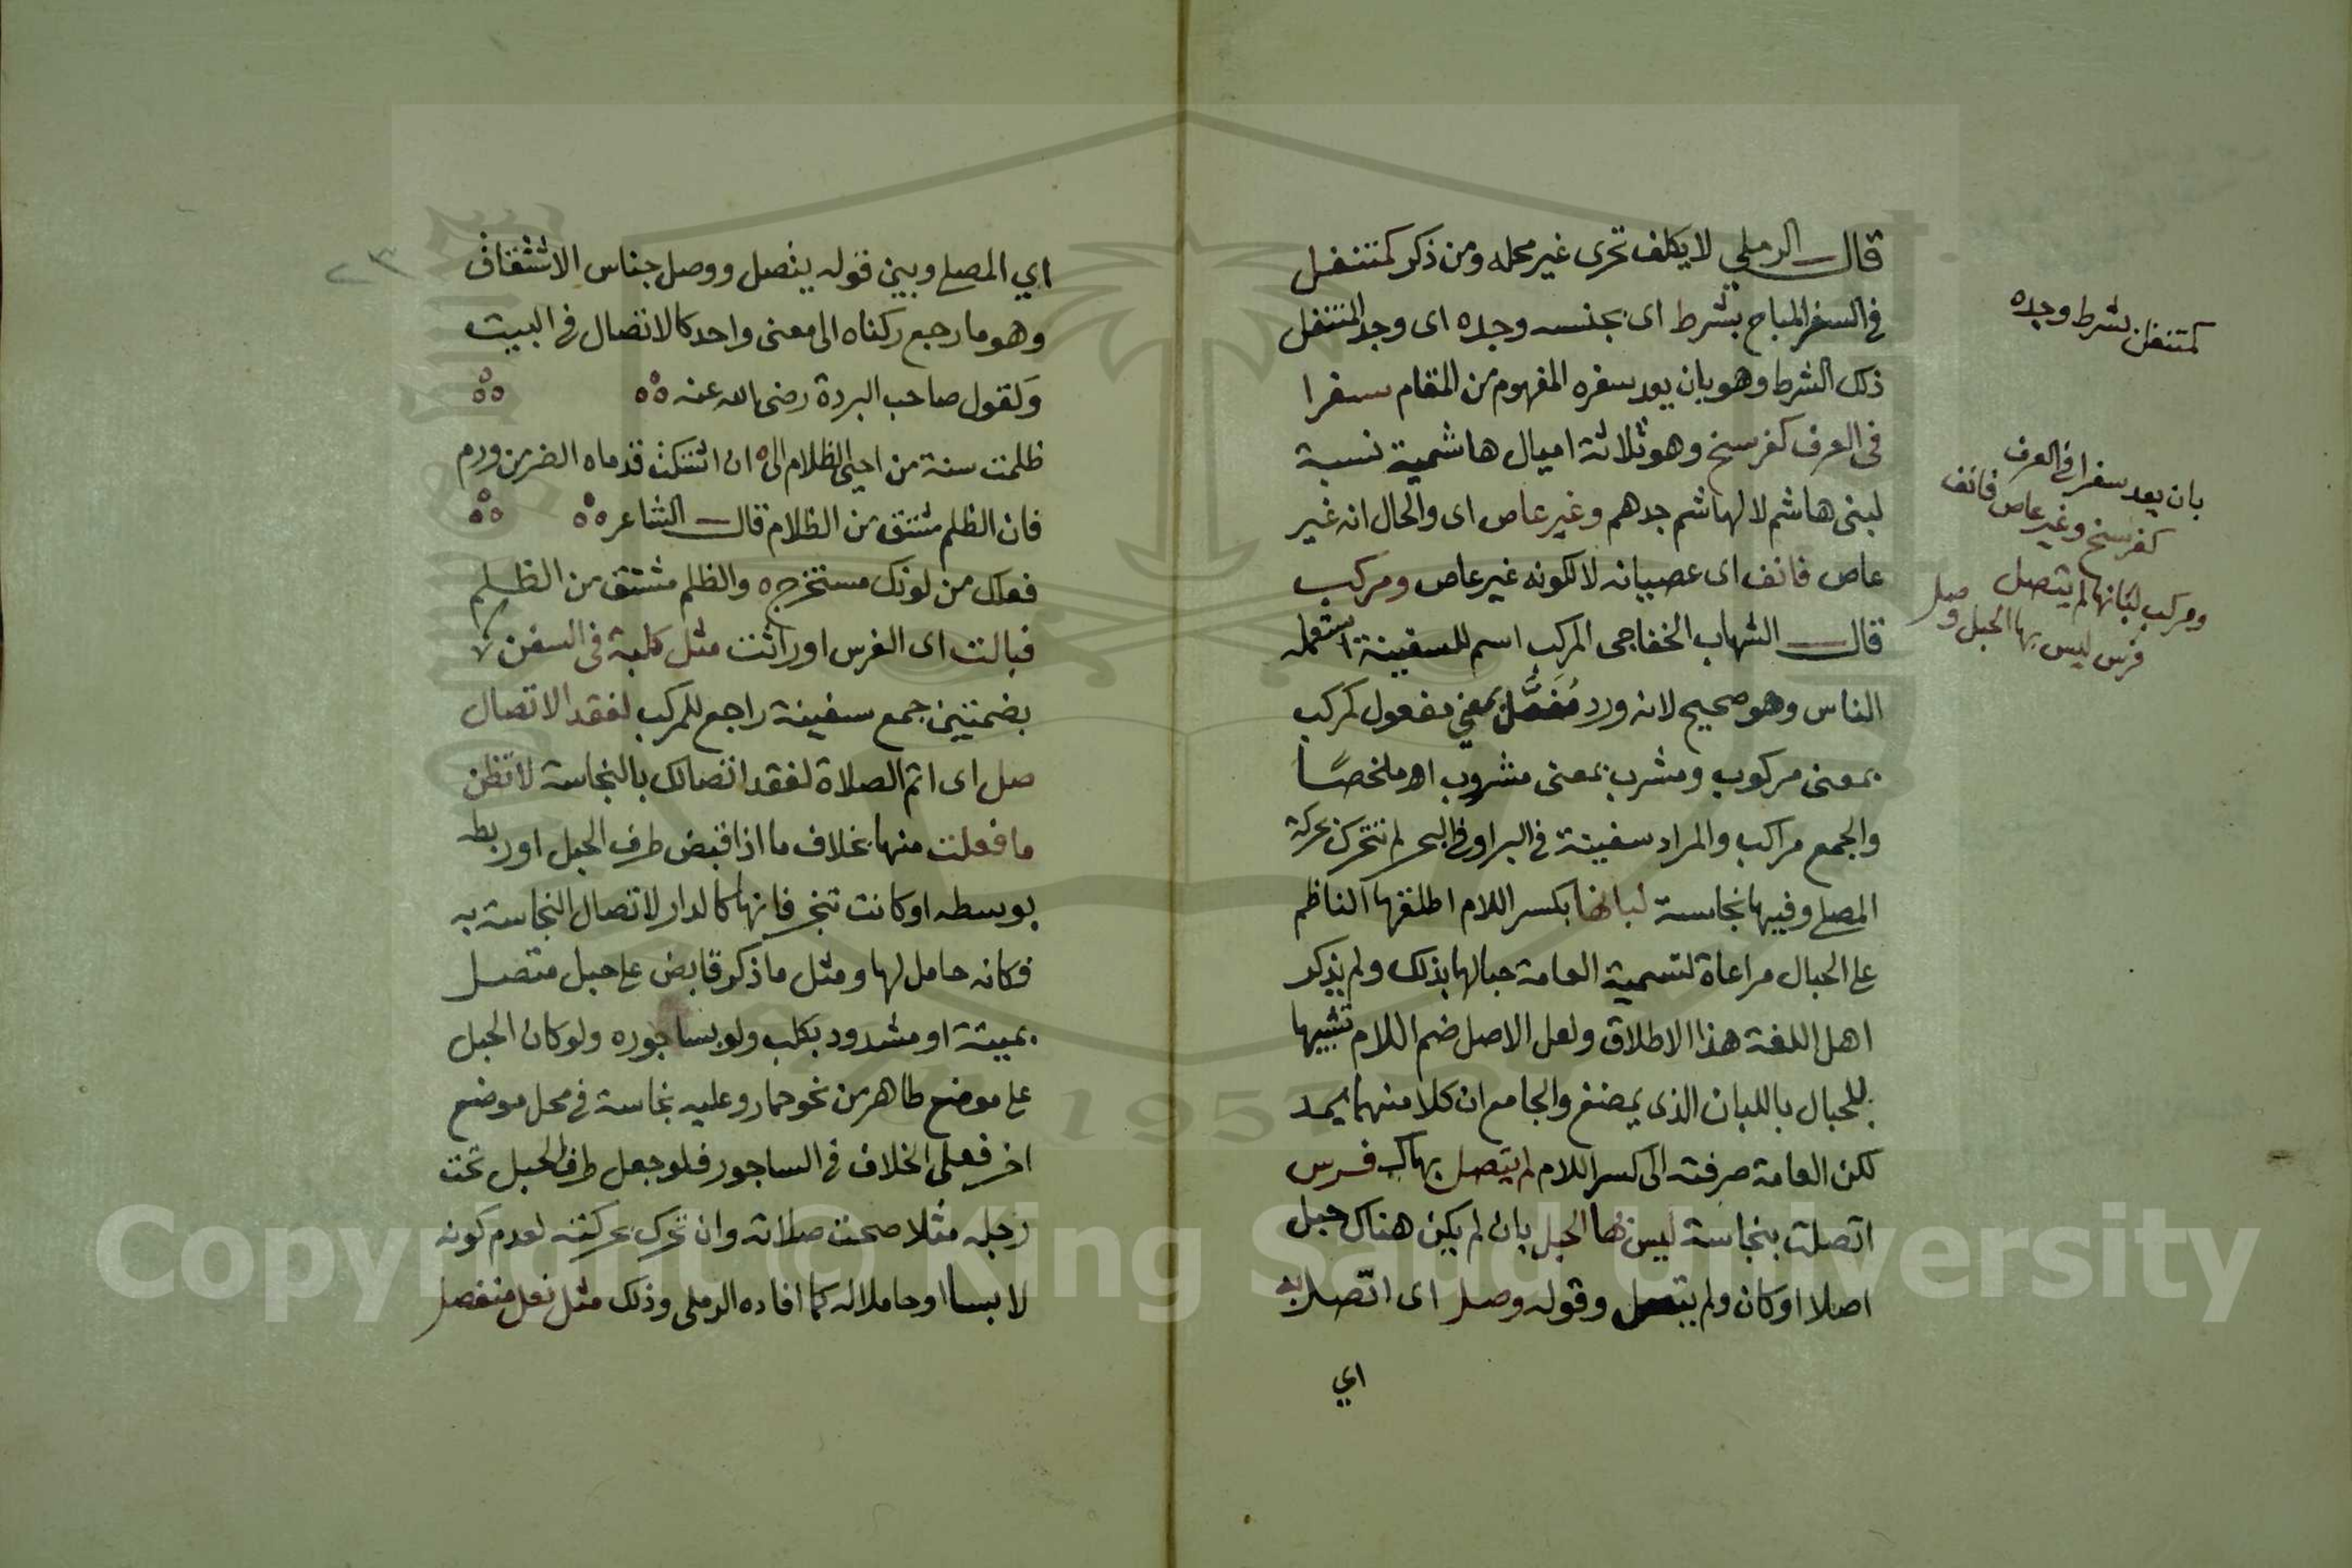 قال الرملي لا يكلف تحرى غير محله ومن ذكر كمتنفل
فى السفر المباح بشرط اى بجنسه وجده اى وجد المتنفل
ذلك الشرط وهو بان يعد سفره المفهوم من المقام سفرا
فى العرف كفرسخ وهو ثلاثة اميال هاشمية نسبة
لبنى هاشم لا لهاشم جدهم وغير عاص اى والحال انه غير
عاص فانف اى عصيانه لا لكونه غير عاص ومركب
قال الشهاب الخفاجى المركب اسم للسفينة استعمله
الناس وهو صحيح لانه ورد مفعل بمعنى مفعول كمركب
بمعنى مركوب ومشرب بمعنى مشروب اه ملخصًا
والجمع مراكب والمراد سفينة فى البر او فى البحر لم تتحرك بحركة
المصلى وفيها نجاسة لبانها بكسر اللام اطلقها الناظم
على الحبال مراعاة لتسمية العامة حبالها بذلك ولم يذكر
اهل اللغة هذا الاطلاق ولعل الاصل ضم اللام تشبيها
للحبال باللبان الذى يمضغ والجامع ان كلا منهما يمد
لكن العامة صرفته الى كسر اللام لم يتصل بها كـ فرس
اتصلت بنجاسة ليس بها الحبل بان لم يكن هناك حبل
اصلا او كان ولم يتصل وقوله وصل اى اتصل به
اي
كمتنفل بشرط وجده
بان يعد سفرا فى العرف
كفرسخ وغير عاص فانف
ومركب لبانها لم يتصل
فرس ليس بها الحبل وصل
٢٣
اي المصلى وبين قوله يتصل ووصل جناس الاشتقاق
وهو ما رجع ركناه الى معنى واحد كالاتصال فى البيت
وَلقول صاحب البردة رضى الله عنه
ظلمت سنة من احيى الظلام الى ٥ ان اشتكت قدماه الضر من ورم
فان الظلم مشتق من الظلام قال الشاعر
فعلك من لونك مستخرج ٥ والظلم مشتق من الظلم
فبالت اى الفرس او راثت مثل كلبة فى السفن لا
بضمتين جمع سفينة راجع للمركب لفقد الاتصال
صل اى اتم الصلاة لفقد اتصالك بالنجاسة لا تظن
ما فعلت منها بخلاف ما اذا قبض طرف الحبل او ربطه
بوسطه او كانت تنجر فانها كالدار لاتصال النجاسة به
فكانه حامل لها ومثل ما ذكر قابض على حبل متصل
بميتة او مشدود بكلب ولو بساجوره ولو كان الحبل
على موضع طاهر من نحو حمار وعليه نجاسة فى محل موضع
اخر فعلى الخلاف فى الساجور فلو جعل طرف الحبل تحت
رجله مثلا صحت صلاته وان تحرك بحركته لعدم كونه
لابسا او حاملا له كما افاده الرملى وذلك مثل نعل منفصل
Copyright © King Saud University
1957